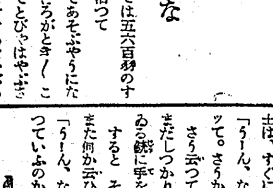 な
は五六百羽のす
つて
てあそぶやうにな
ろがとき〳〵こ
とびやはやぶさ
士は、すぐ
「うーん、な
ツて。さうか
さう云つて
まだしつかり
ゐる銃に手を
すると　そ
また何か云ひ
「うーん、な
つていふのか